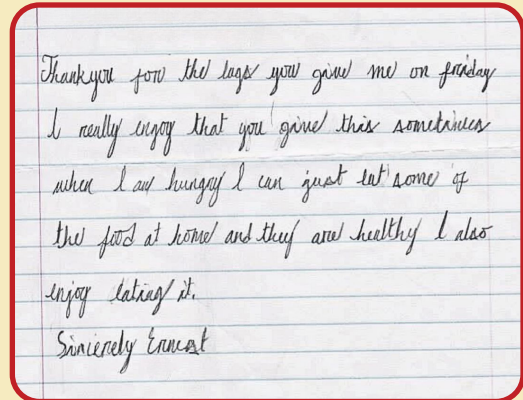 Thankyou for the bags you give me on friday
I really enjoy that you give this sometimes
when I am hungry I can just eat some of
the food at home and they are healthy I also
enjoy eating it.
Sincerely Ernest